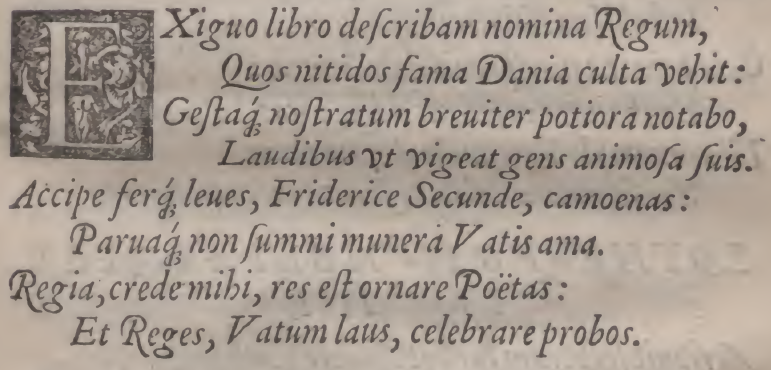 EXiguo libro deſcribam nomina Regum,
Quos nitidos fama Dania culta vehit:
Geſtaq́ꝫ noſtratum breuiter potiora notabo,
Laudibus vt vigeat gens animoſa ſuis.
Accipe ferq́ꝫ leues, Friderice Secunde, camoenas:
Paruaq́ꝫ non ſummi munera Vatis ama.
Regia, crede mihi, res eſt ornare Poëtas:
Et Reges, Vatum laus, celebrare probos.